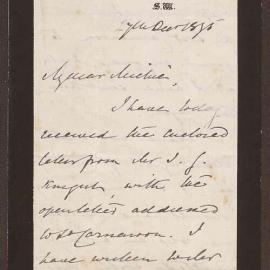 S.W.
7th Decr 1875
My dear Michie,
I have today
received the enclosed
letter from Mr J. G.
Knight with the
open letter addressed
to Ld Carnarvon. I
have written to